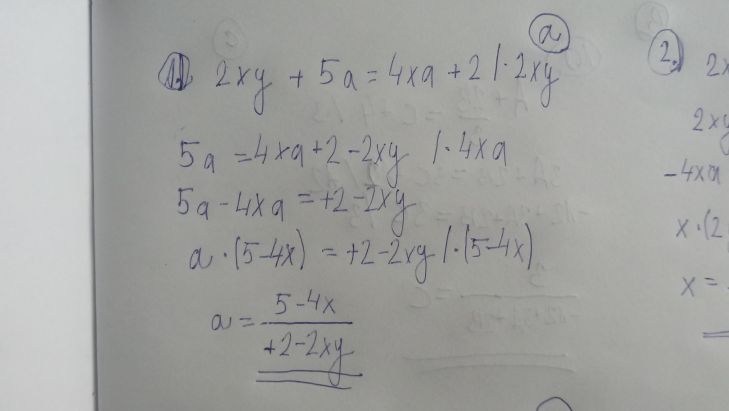 a
1. 2xy + 5a = 4xa + 2 / · 2xy
5a = 4xa + 2 - 2xy / · 4xa
5a - 4xa = +2 - 2xy
a · (5 - 4x) = +2 - 2xy / · (5 - 4x)
a = 5 - 4x
+2 - 2xy
2. 2x
2xy
-4xa
x · (2
x =